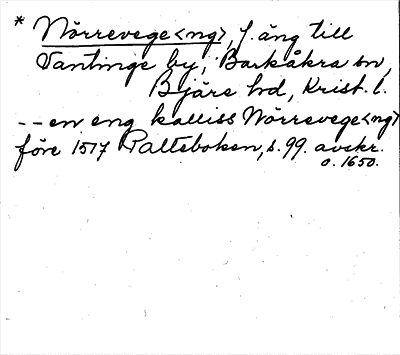 * Nörrevege<ng>, f. äng till
Vantinge by, Barkåkra sn,
Bjäre hd, Krist. l.
-- en eng kalliss Nörrevege<ng>
före 1517 Palteboken, s. 99. avskr.
o. 1650.